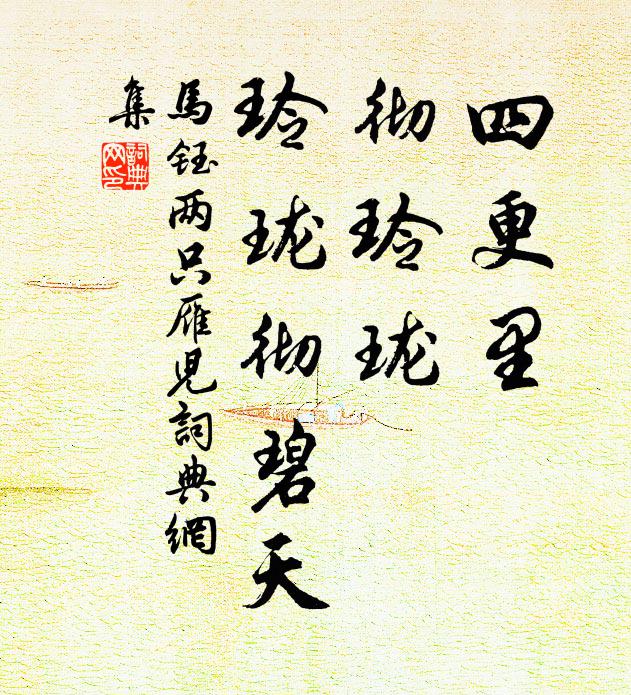 四更里
彻玲珑
玲珑彻碧天
馬钰两只雁児詞典網
集
詞典
网印